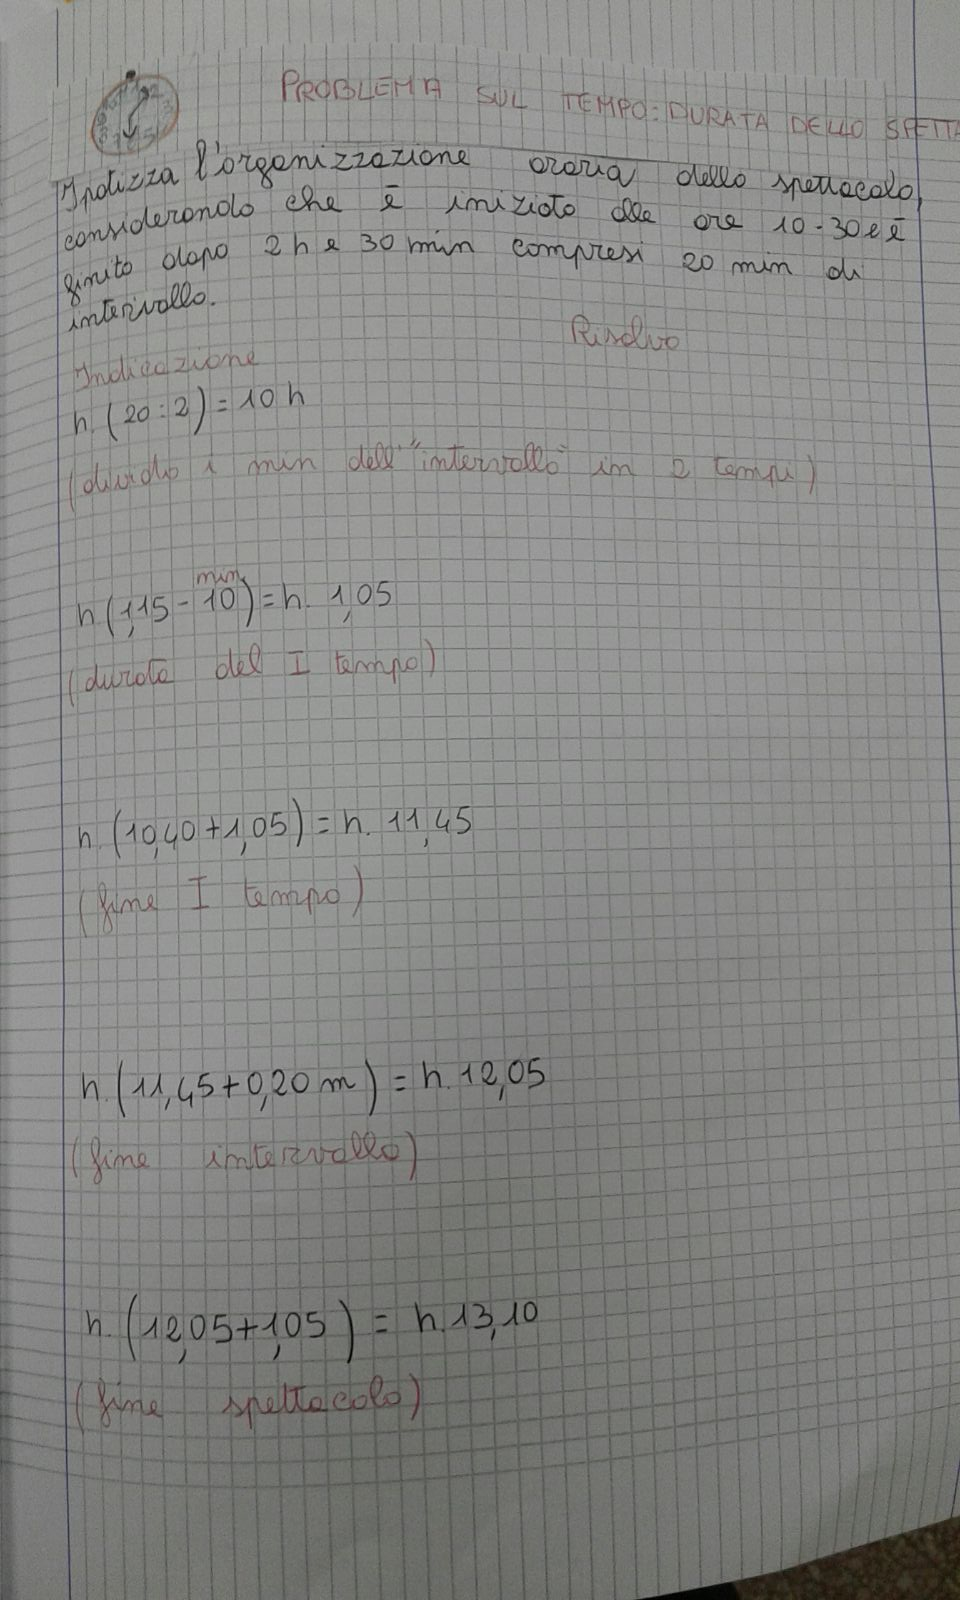 PROBLEMA SUL TEMPO: DURATA DELLO SPETTA
Ipotizza l'organizzazione oraria dello spettacolo,
considerando che è iniziato alle ore 10.30 e è
finito dopo 2 h e 30 min compresi 20 min di
intervallo.
Risolvo
Indicazione
h. (20:2) = 10 h
(divido i min dell'"intervallo" in 2 tempi)
min
h (1,15 - 10) = h. 1,05
(durata del I tempo)
h. (10,40 + 1,05) = h. 11,45
(fine I tempo)
h. (11,45 + 0,20 m) = h. 12,05
(fine intervallo)
h. (12,05 + 1,05) = h. 13,10
(fine spettacolo)